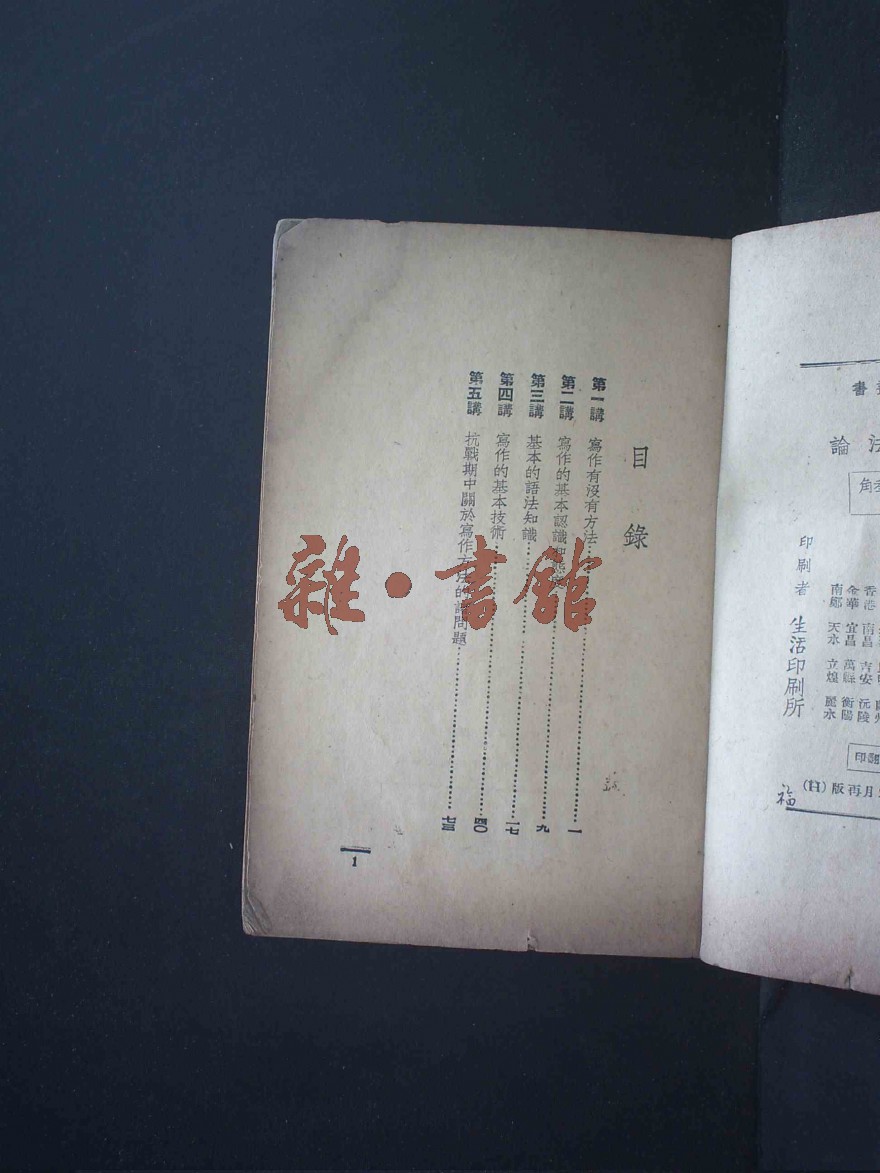 書
法論
角
印刷者 生活印刷所
香港 南昌 吉安 沅陵
金華 宜昌 萬縣 衡陽
南鄭 天水 立煌 麗水
印翻
月再版(日)
福
目錄
第一講 寫作有沒有方法……一
第二講 寫作的基本認識……九
第三講 基本的語法知識……一七
第四講 寫作的基本技術……四〇
第五講 抗戰期中關於寫作方法的諸問題……七三
1
雜·書館